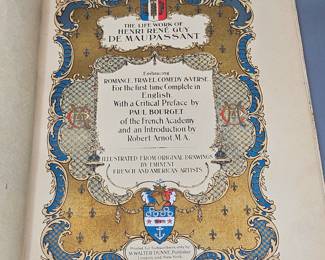 THE LIFE WORK OF
HENRI RENÉ GUY
DE MAUPASSANT
Embracing
ROMANCE, TRAVEL, COMEDY & VERSE
For the first time Complete in
English.
With a Critical Preface by
PAUL BOURGET
of the French Academy
and an Introduction by
Robert Arnot, M.A.
ILLUSTRATED FROM ORIGINAL DRAWINGS
BY EMINENT
FRENCH AND AMERICAN ARTISTS
Printed for Subscribers only by
M. WALTER DUNNE, Publisher
London and New York